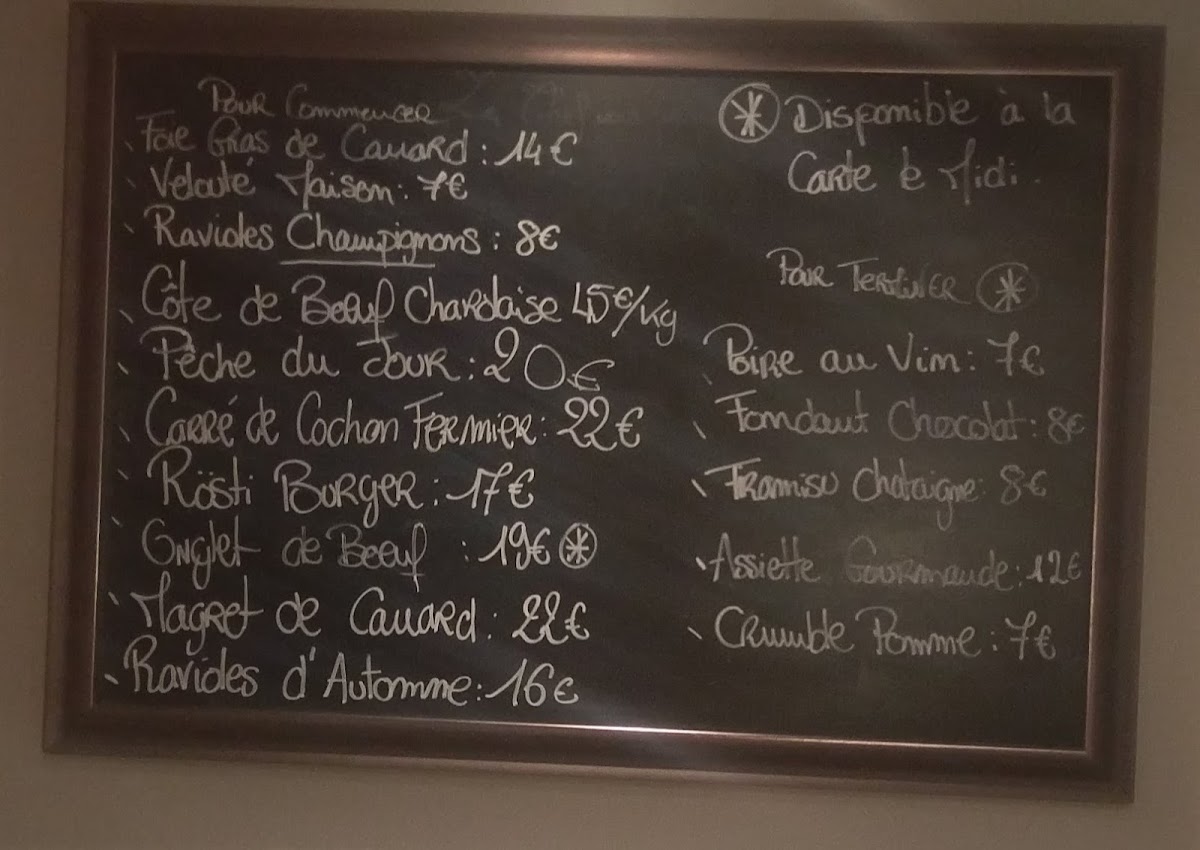 Pour Commencer
Foie Gras de Canard : 14€
Velouté Maison : 7€
Ravioles Champignons : 8€
Côte de Boeuf Charolaise 45€/Kg
Pêche du Jour : 20€
Carré de Cochon Fermier : 22€
Rösti Burger : 17€
Onglet de Boeuf : 19€ *
Magret de Canard : 22€
Ravioles d'Automne : 16€
* Disponible à la
Carte le Midi.
Pour Terminer *
Poire au Vin : 7€
Fondant Chocolat : 8€
Tiramisu Chataigne : 8€
Assiette Gourmande : 12€
Crumble Pomme : 7€